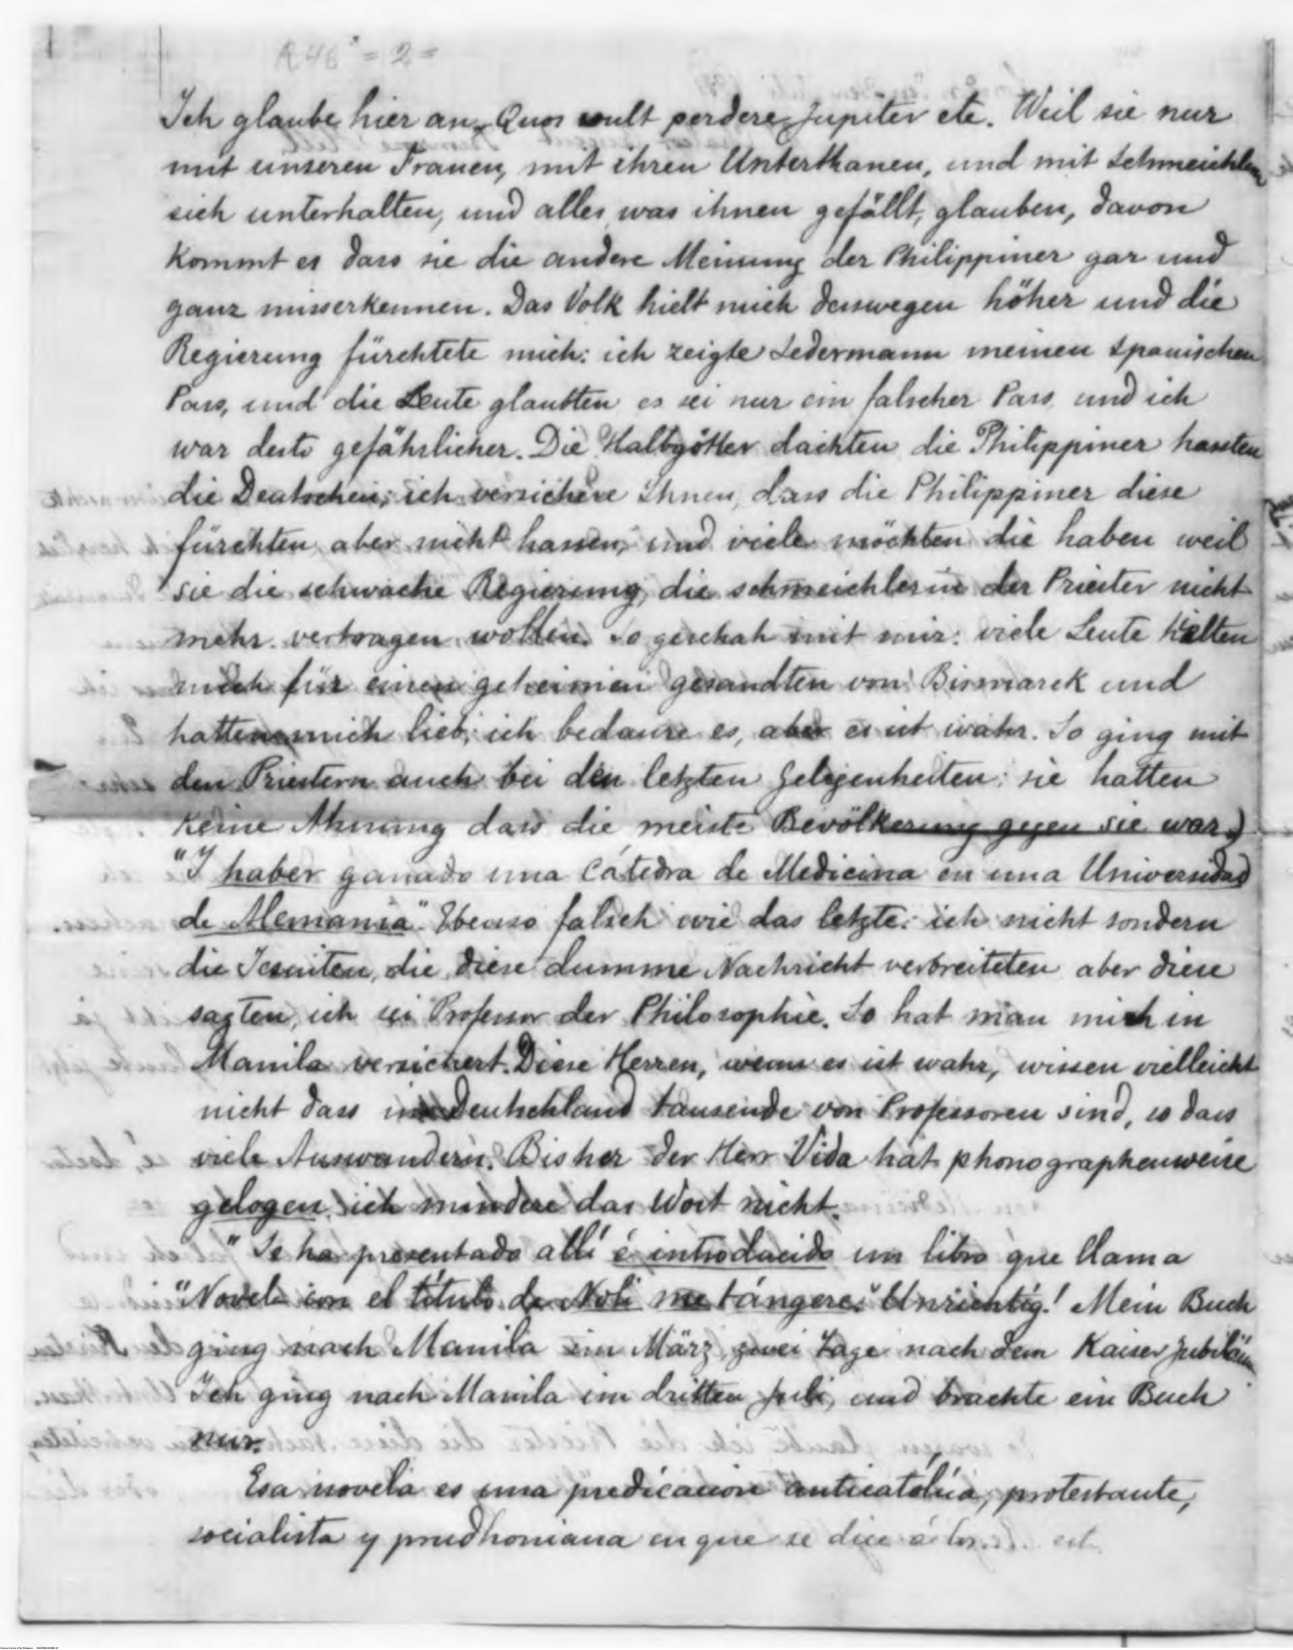 = 2 =
Ich glaube hier an „Quos vult perdere Jupiter etc. Weil sie nur
mit unseren Frauen, mit ihren Unterthanen, und mit Schmeichlern
sich unterhalten, und alles was ihnen gefällt, glauben, davon
kommt es dass sie die andere Meinung der Philippiner gar und
ganz misserkennen. Das Volk hielt mich desswegen höher und die
Regierung fürchtete mich: ich zeigte Jedermann meinen spanischen
Pass, und die Leute glaubten es sei nur ein falscher Pass und ich
war desto gefährlicher. Die Halbgötter dachten die Philippiner hassten
die Deutschen; ich versichere Ihnen, dass die Philippiner diese
fürchten aber nicht hassen, und viele möchten die haben weil
sie die schwache Regierung, die schmeichlerin der Priester nicht
mehr vertragen wollen. So geschah mit mir: viele Leute hielten
mich für einen geheimen gesandten von Bismarck und
hatten mich lieb; ich bedaure es, aber es ist wahr. So ging mit
den Priestern auch bei den letzten Gelegenheiten: sie hatten
keine Ahnung dass die meiste Bevölkerung gegen sie war.)
"I haber ganado una Cátedra de Medicina en una Universidad
de Alemania". Ebenso falsch wie das letzte: ich nicht sondern
die Jesuiten, die diese dumme Nachricht verbreiteten aber diese
sagten, ich sei Professor der Philosophie. So hat man mich in
Manila versichert. Diese Herren, wenn es ist wahr, wissen vielleicht
nicht dass in Deutschland tausende von Professoren sind, so dass
viele Auswandern. Bisher der Herr Vida hat phonographenweise
gelogen, ich mindere das Wort nicht.
" Se ha presentado allí é introducido un libro que llama
"Novela con el título de Noli me tángere." Unrichtig! Mein Buch
ging nach Manila im März zwei Tage nach dem Kaiser Jubiläum
Ich ging nach Manila im dritten Juli, und brachte ein Buch
nur.
Esa novela es una predicacion anticatólica, protestante,
socialista y prudhoniana en que se dice á los